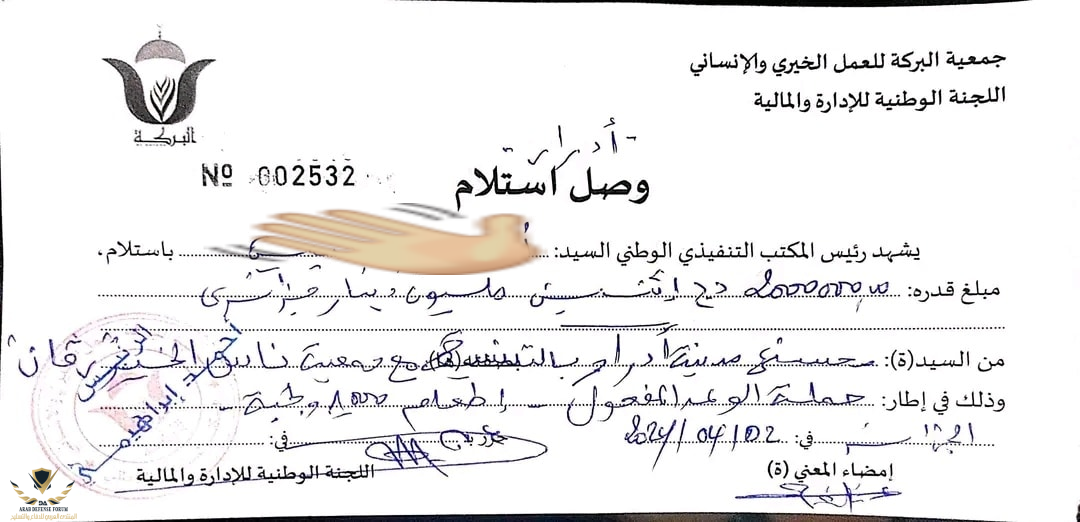 جمعية البركة للعمل الخيري والإنساني
اللجنة الوطنية للإدارة والمالية
البركة
- أدرار -
Nº 002532
وصل استلام
يشهد رئيس المكتب التنفيذي الوطني السيد: باستلام،
مبلغ قدره: 2000000,00 دج إثنين مليون دينار جزائري
من السيد(ة): محسني مدينة أدرار بالتنسيق مع جمعية ناس الخير رقان
وذلك في إطار: حملة الوعد المفعول - إطعام 1000 وجبة -
الجزائر في: 2024/04/02 في:
إمضاء المعني (ة)
اللجنة الوطنية للإدارة والمالية
الرئيس
أحمد إبراهيمي
ARAB DEFENSE FORUM
المنتدى العربي للدفاع والتسليح